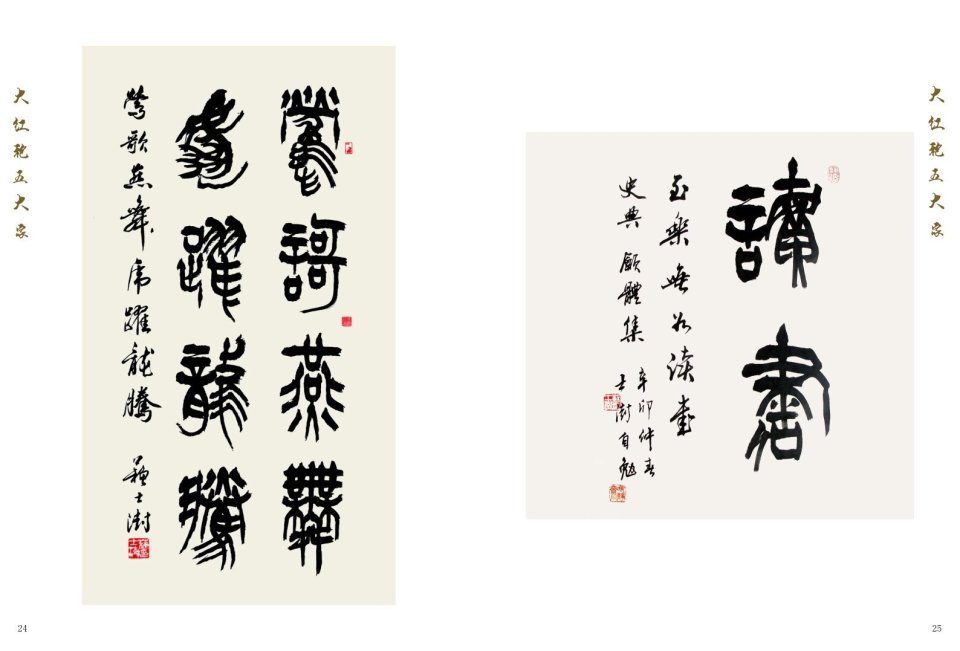 大红袍五大家
鶯謌燕舞
虎躍龍騰
鶯歌燕舞虎躍龍騰 蘇士澍
24
讀書
至樂無如读書
史典 顧體集
辛卯仲春
士澍自勉
大红袍五大家
25